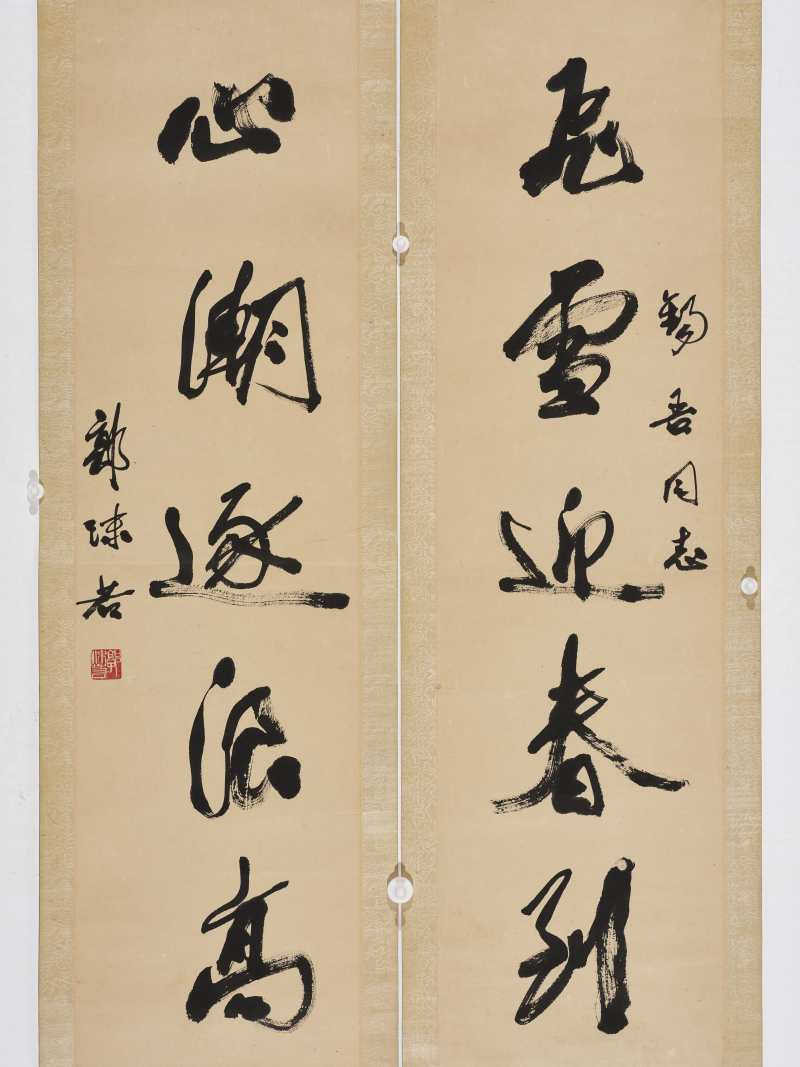 錫吾同志
飛雪迎春到
心潮逐浪高
郭沫若